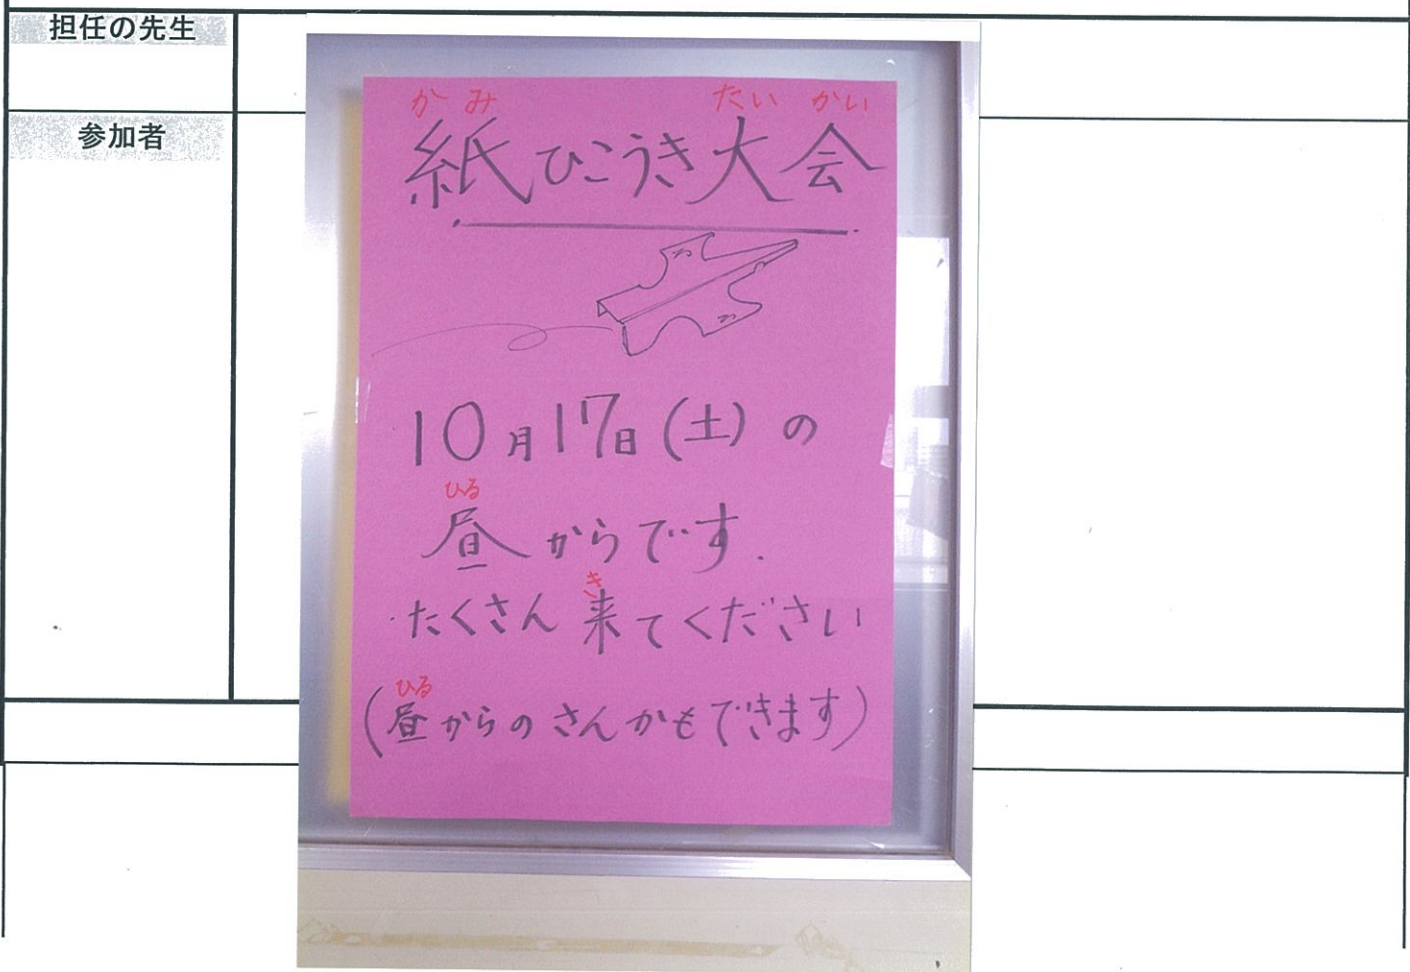 担任の先生
参加者
かみ たいかい
紙ひこうき大会
10月17日(土)の
ひる
昼からです.
き
たくさん来てください
ひる
(昼からのさんかもできます)